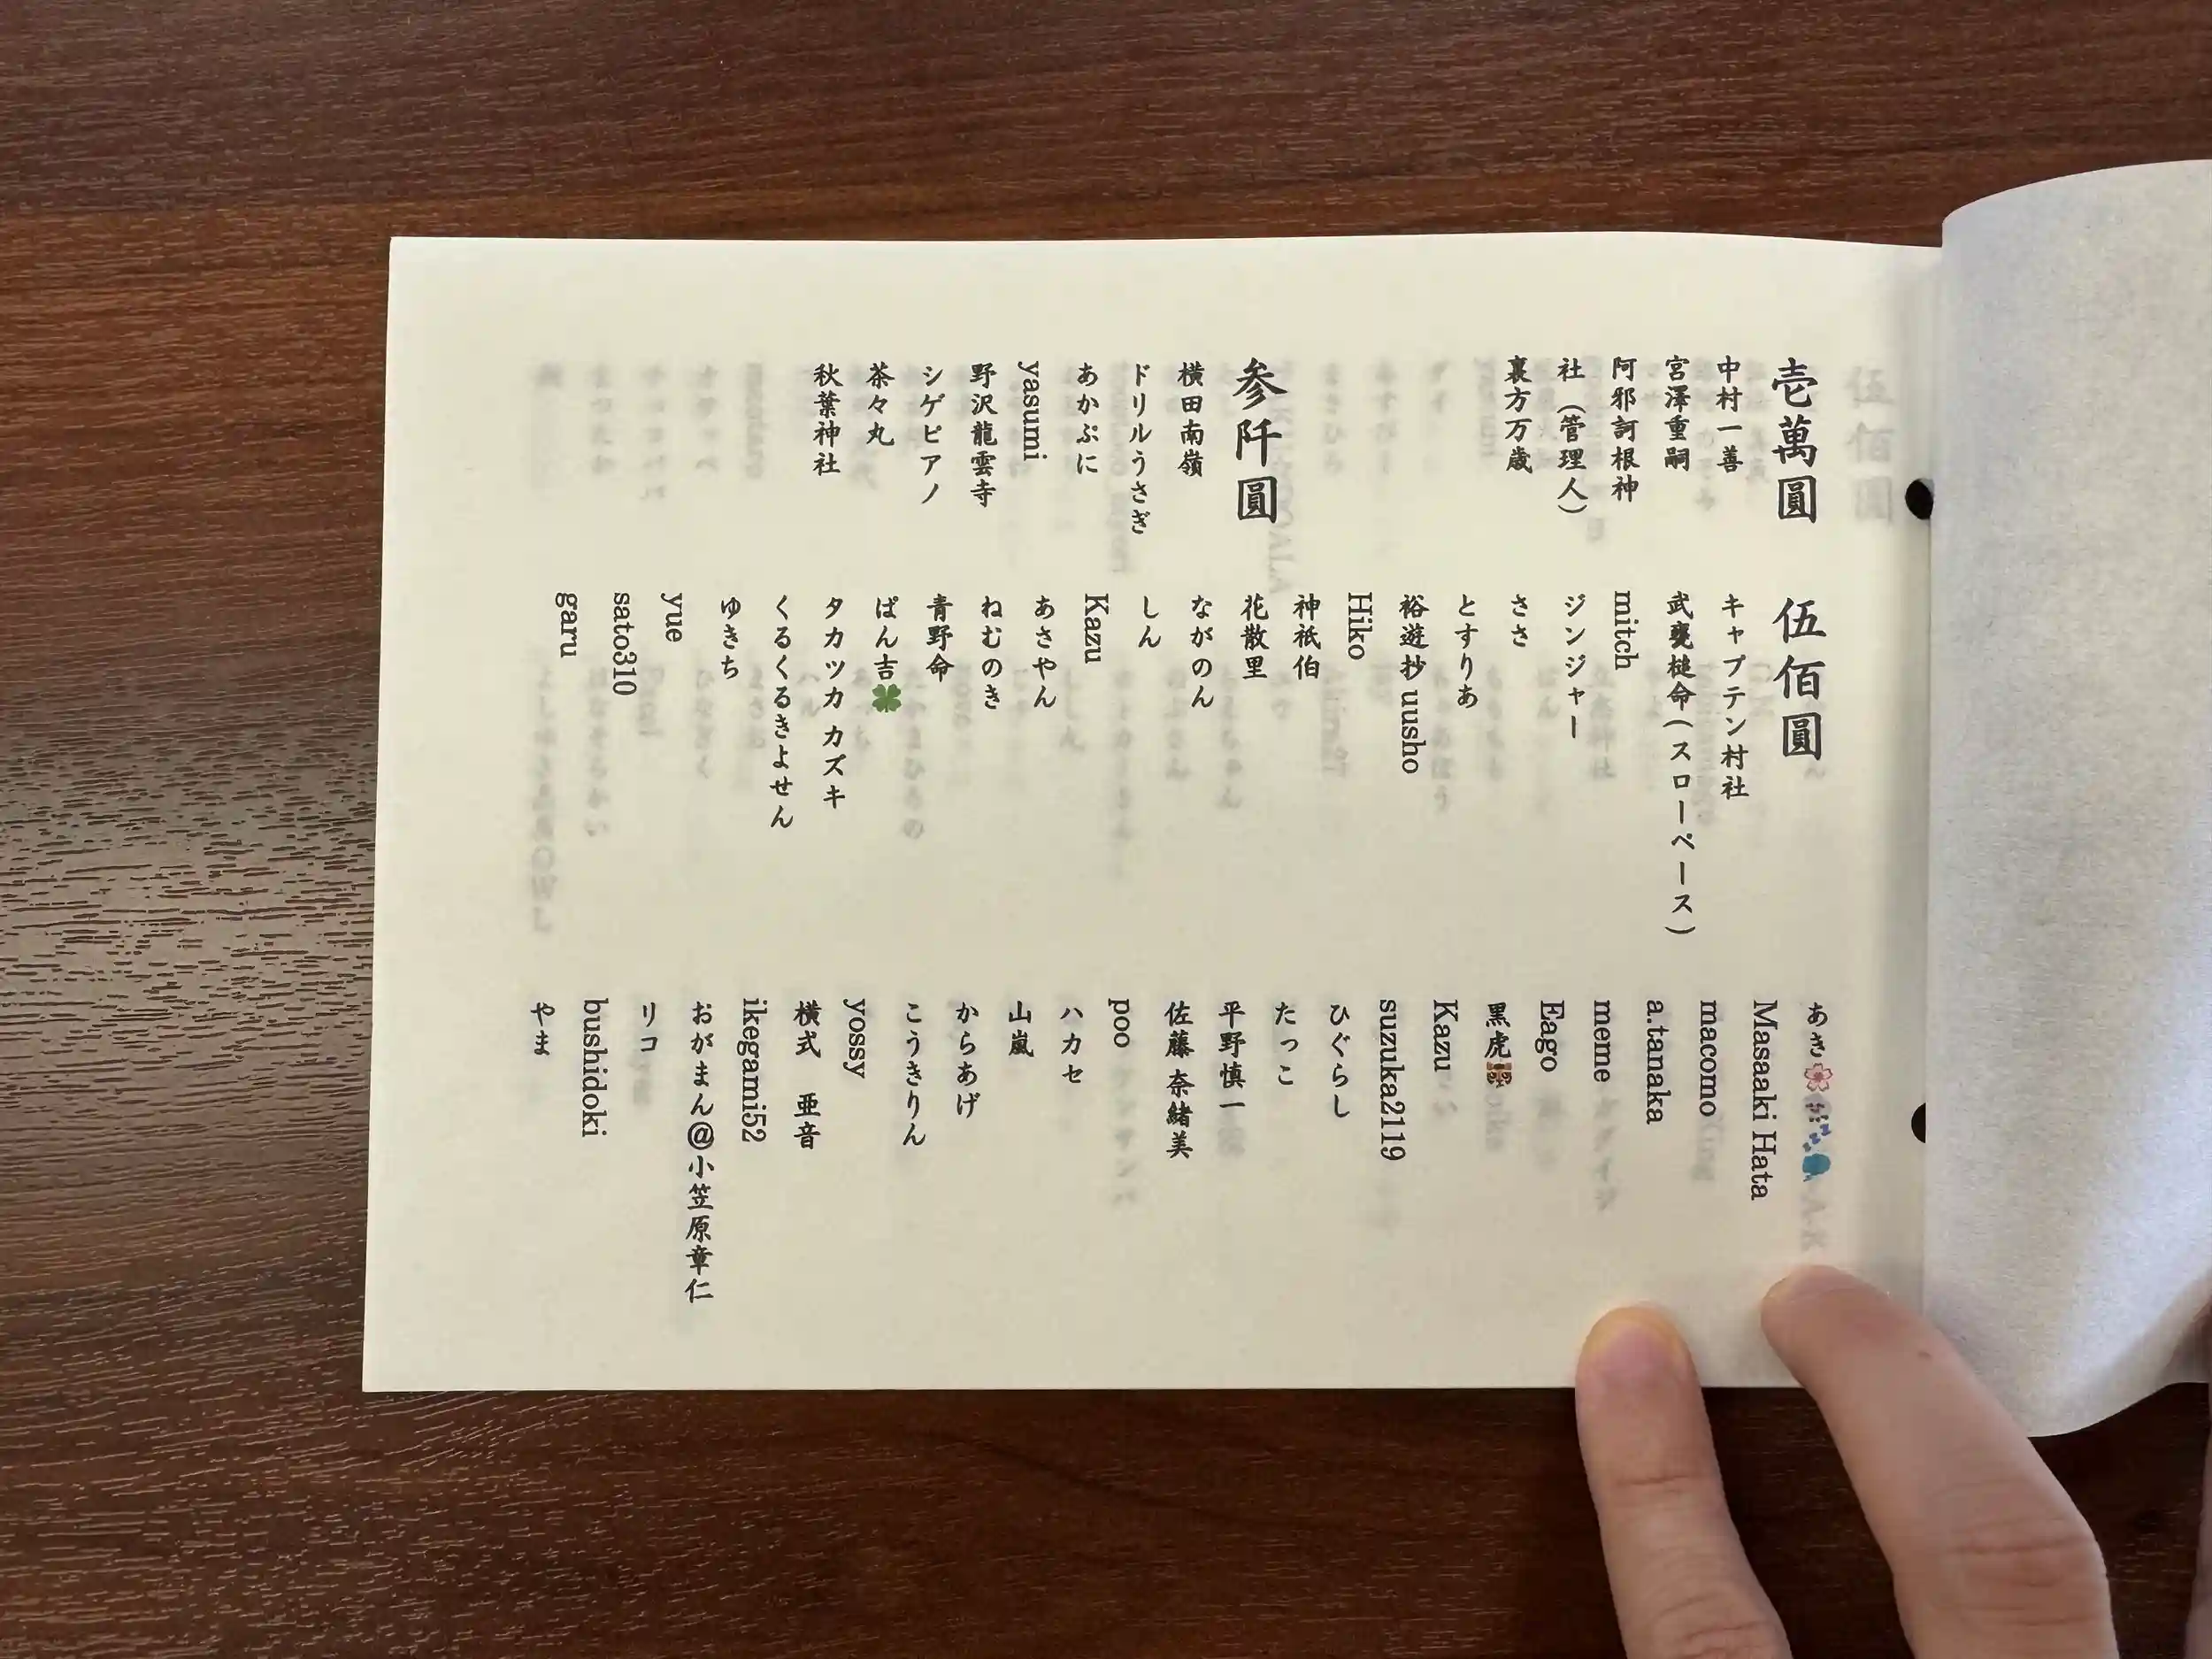 壱萬圓
中村一善
宮澤重嗣
阿邪訶根神
社（管理人）
裏方万歳
参阡圓
横田南嶺
ドリルうさぎ
あかぷに
yasumi
野沢龍雲寺
シゲピアノ
茶々丸
秋葉神社
伍佰圓
キャプテン村社
武甕槌命(スローペース)
mitch
ジンジャー
ささ
とすりあ
裕遊抄 uusho
Hiko
神祇伯
花散里
ながのん
しん
Kazu
あさやん
ねむのき
青野命
ぱん吉🍀
タカツカ カズキ
くるくるきよせん
ゆきち
yue
sato310
garu
あき🌸
Masaaki Hata
macomo
a.tanaka
meme
Eago
黒虎
Kazu
suzuka2119
ひぐらし
たっこ
平野慎一
佐藤 奈緒美
poo
ハカセ
山嵐
からあげ
こうきりん
yossy
横式 亜音
ikegami52
おがまん@小笠原章仁
リコ
bushidoki
やま